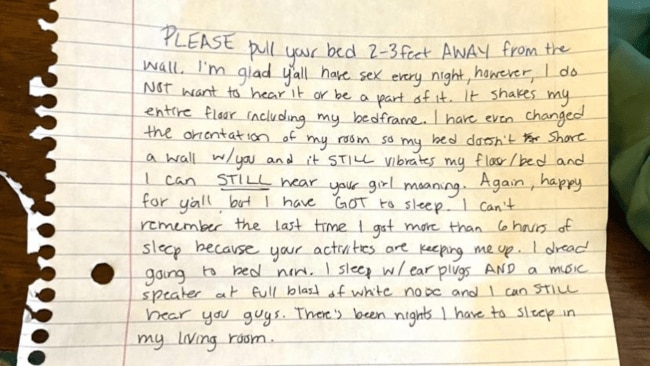 PLEASE pull your bed 2-3 feet AWAY from the
wall. I'm glad y'all have sex every night, however, I do
NOT want to hear it or be a part of it. It shakes my
entire floor including my bedframe. I have even changed
the orientation of my room so my bed doesn't share
a wall w/you and it STILL vibrates my floor/bed and
I can STILL hear your girl moaning. Again, happy
for y'all but I have GOT to sleep. I can't
remember the last time I got more than 6 hours of
sleep because your activities are keeping me up. I dread
going to bed now. I sleep w/ ear plugs AND a music
speaker at full blast of white noise and I can STILL
hear you guys. There's been nights I have to sleep in
my living room.